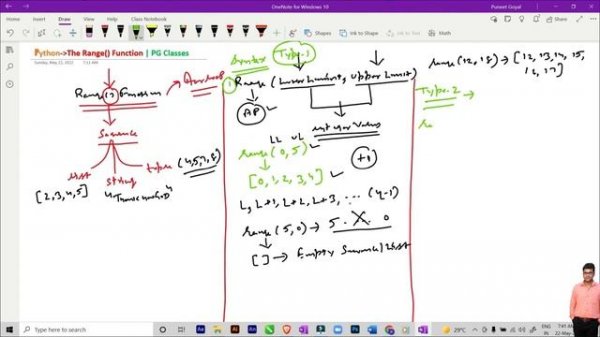 OneNote for Windows 10
Puneet Goyal
Home Insert Draw View Help Class Notebook
Ink to Shape
Ink to Text
Math
Python->The Range() Function | PG Classes
Sunday, May 22, 2022 7:11 AM
Range() Function
Sequence
list string tuple
(4,5,7,8)
[2,3,4,5]
Syntax Type-1
① Range (Lower Limit, Upper Limit)
AP
LL UL
Integer Values
range(0,5)
+1
[0,1,2,3,4]
L, L+1, L+2, L+3, ...
range(5,0) → 5 . X . 0
[] → Empty Sequence/List
range(12,18) → [12, 13, 14, 15,
16, 17]
Type-2 →
Type here to search
29°C
ENG
IN